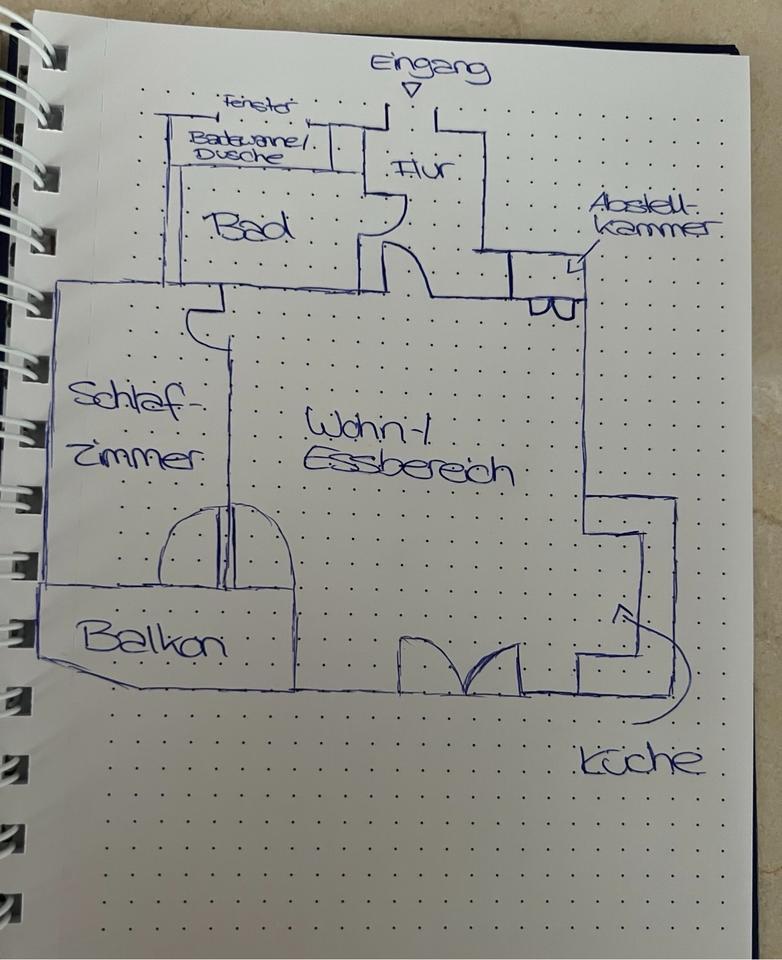 Eingang
Fenster
Badewanne/
Dusche
Flur
Bad
Abstell-
kammer
Schlaf-
zimmer
Wohn-/
Essbereich
Balkon
Küche